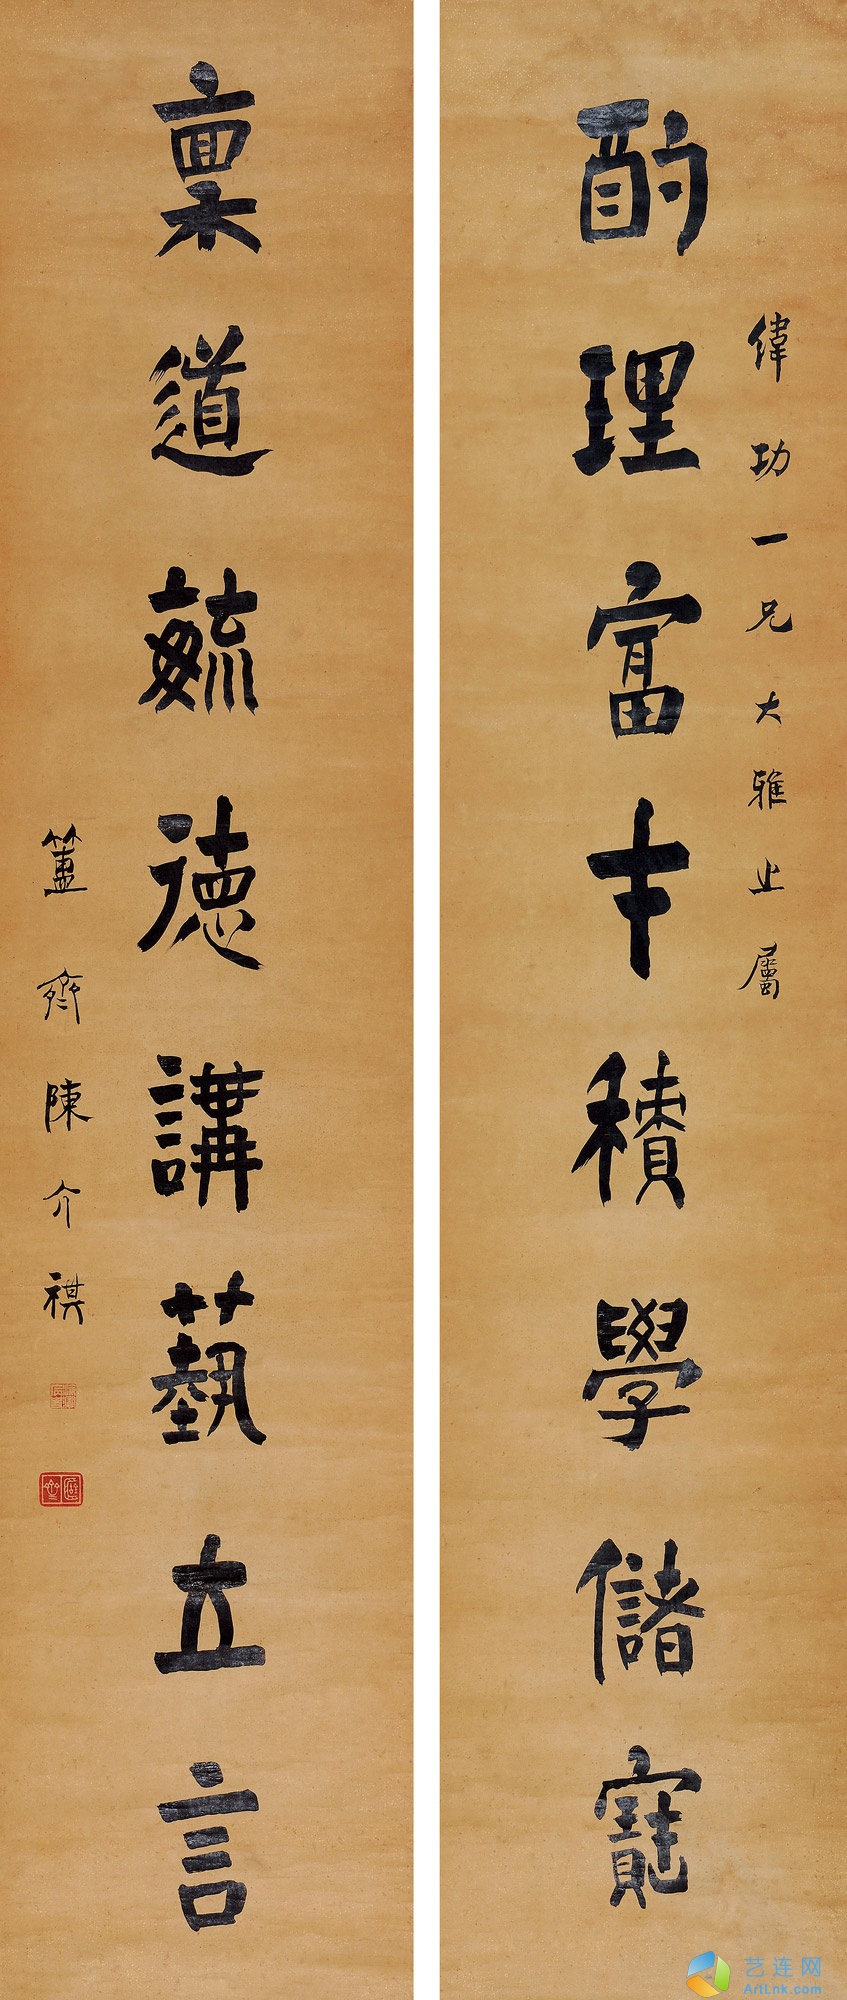 緯功一兄大雅之屬
酌理富才積學儲寶
稟道毓德講藝立言
簠齋陳介祺
艺连网
ArtLnk.com